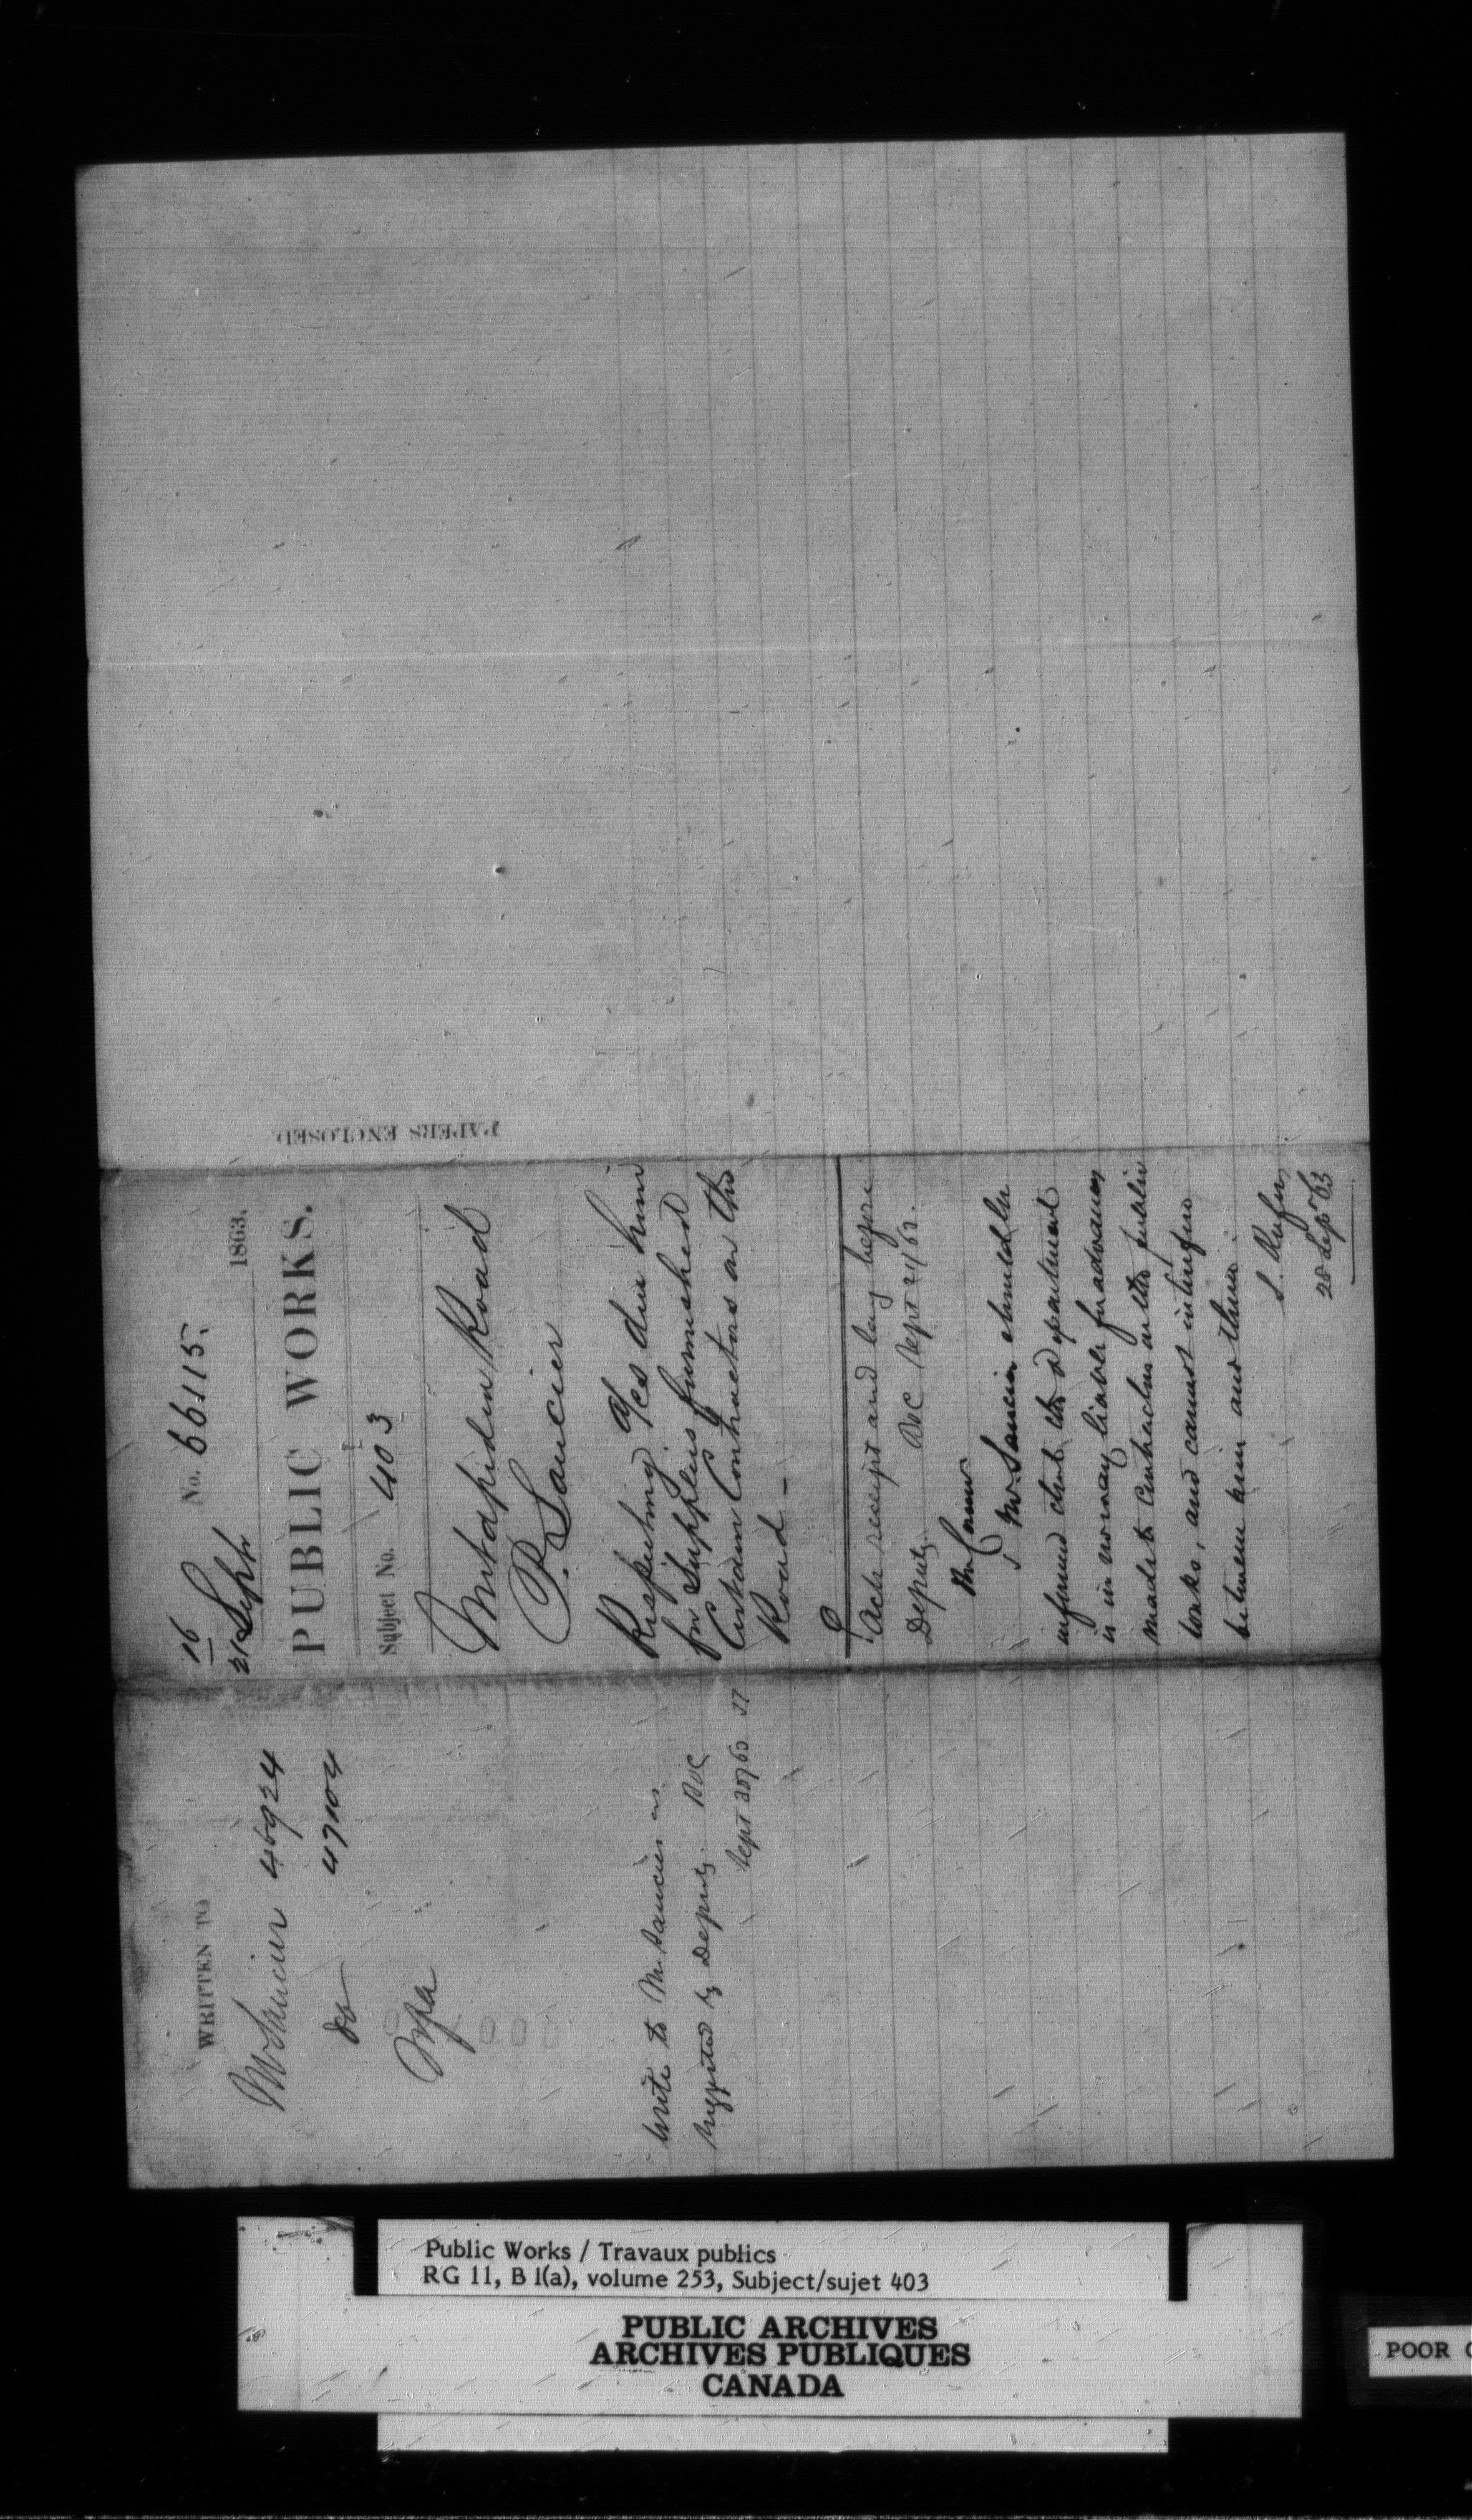 WRITTEN TO
Mr Saucier 46924
do 47104
Write to Mr Saucier as
suggested by Deputy.
Sept 30/63
16
21 Sept No. 66115
1863.
PUBLIC WORKS.
Subject No. 403
Metapedia Road
P. Saucier
Respecting a/cs due him
for Supplies furnished
Certain Contractors on the
Road -
Ack receipt and lay before
Deputy. Sept 21/63.
Mr Saucier should be
informed that the department
is in no way liable for advances
made to Contractors on the public
works, and cannot interfere
between him and them.
28 Sep 63
PAPERS ENCLOSED.
Public Works / Travaux publics
RG 11, B 1(a), volume 253, Subject/sujet 403
PUBLIC ARCHIVES
ARCHIVES PUBLIQUES
CANADA
POOR